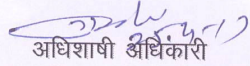 अधिशाषी अधिकारी